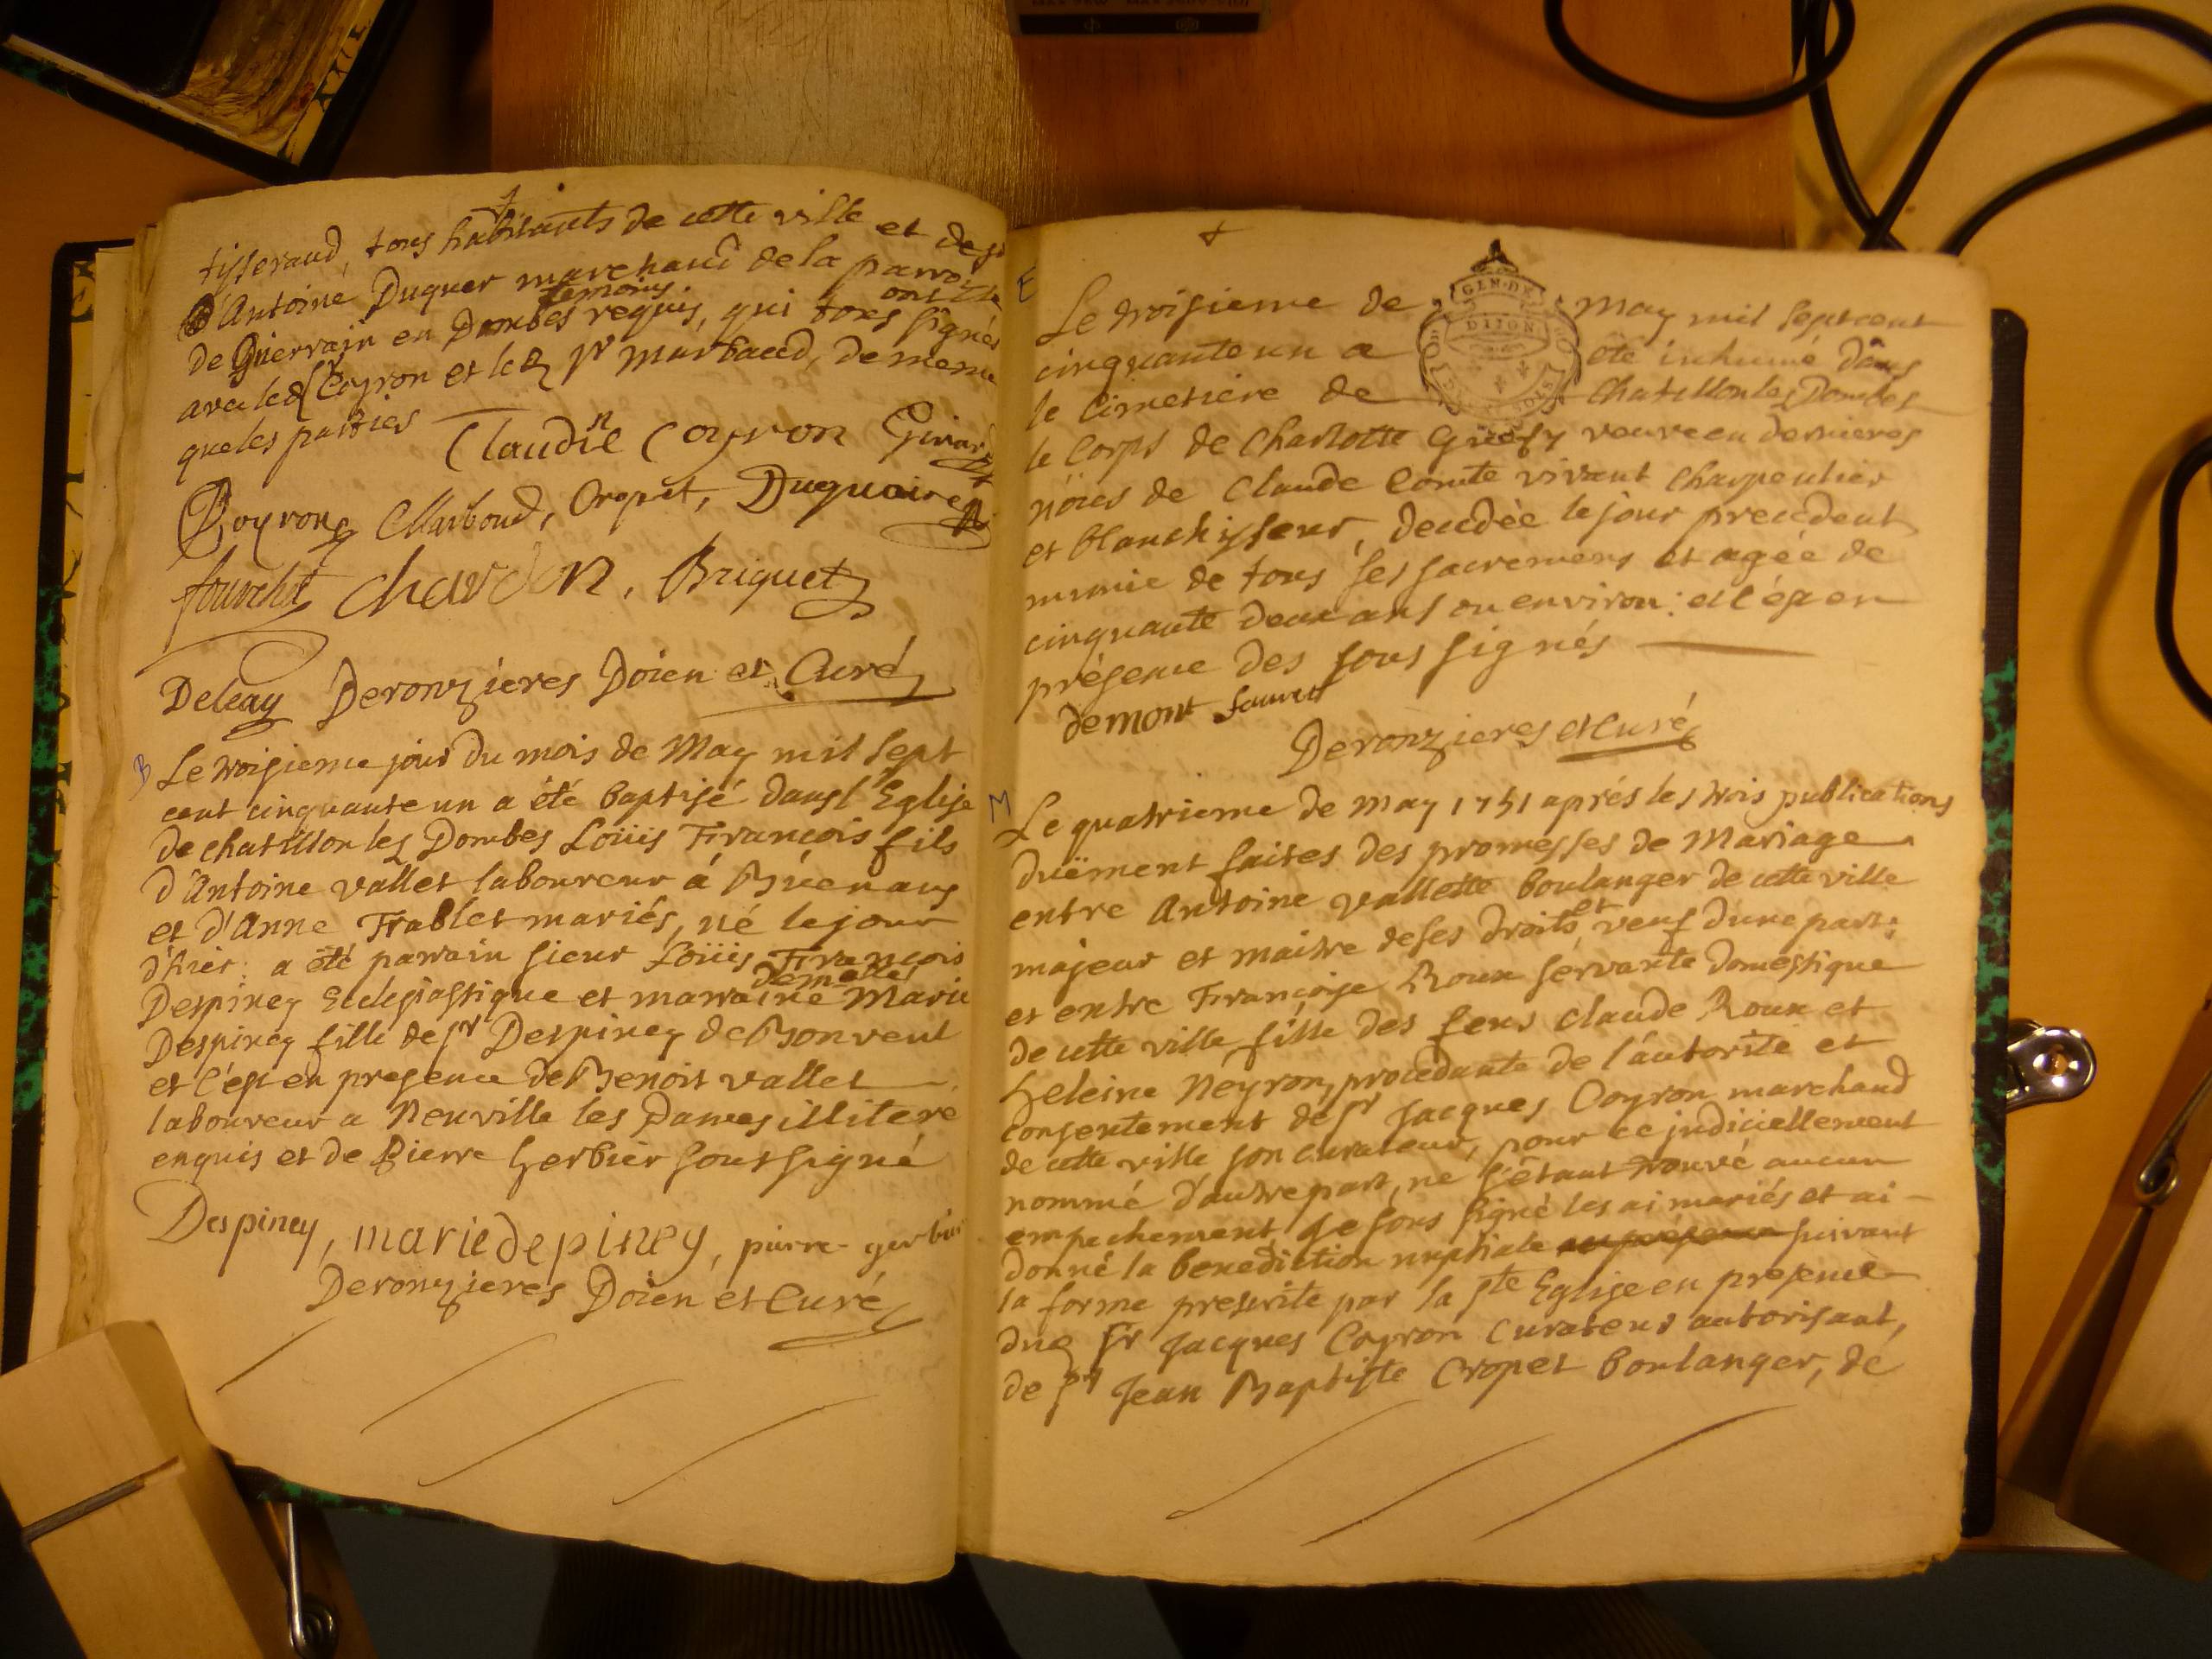 tisseraud, tous habitants de cette ville et de sr
d'Antoine Duguer marchand de la parroisse
temoins ont
de Guierrain en Dombes requis, qui tous signés
avec led Sr Coyron et led sr Marbaud, de meme
que les parties
Claudie Coyron Girard
Coyron Marboud, Cropet, Duguaire
fourchet chardon, Briquet
Deleay Deronzieres Doien et Curé
B
Le troisieme jour du mois de May mil sept
cent cinquante un a été baptisé dans l'Eglise
de chatillon les Dombes Loüis François fils
d'Antoine vallet laboureur á Buenans
et d'Anne Trablet mariés, né le jour
d'hier: a été parrain sieur Loüis François
demelle
Despiney Eclesiastique et marraine Marie
Despiney fille de sr Despiney de Bonvent
et c'est en presence de Benoit vallet
laboureur a Neuville les Dames illiteré
enquis et de Pierre herbier soussigné
Despiney, marie depiney, pierre gerbier
Deronzieres Doien et Curé
E
Le troisieme de May mil septcent
cinquante un a été inhumé dans
le Cimetiere de Chatillon les Dombes
le Corps de Charlotte veuve en dernieres
nôces de Claude Comte vivant Charpentier
et blanchisseur, decedée le jour precedent
munie de tous ses sacremens et agée de
cinquante deux ans ou environ: et c'est en
présence des sous signés
demont fauvet
Deronzieres et Curé
M
Le quatrieme de may 1751 aprés les trois publications
duëment faites des promesses de Mariage
entre Antoine Vallette boulanger de cette ville
et
majeur et maitre de ses droits veuf d'une part;
et entre Françoise Roux servante domestique
de cette ville fille des feus Claude Roux et
heleine Neyron, procedante de l'autorité et
consentement de sr Jacques Coyron marchand
de cette ville son curateur, pour ce judiciellement
nommé d'autre part, ne s'étant trouvé aucun
empechement, je sous signé les ai mariés et ai
donné la benediction nuptiale en présence suivant
la forme prescrite par la ste Eglise en presence
dud sr Jacques Coyron Curateur autorisant,
de sr Jean Baptiste Cropet boulanger, de
GEN. DE
DIJON